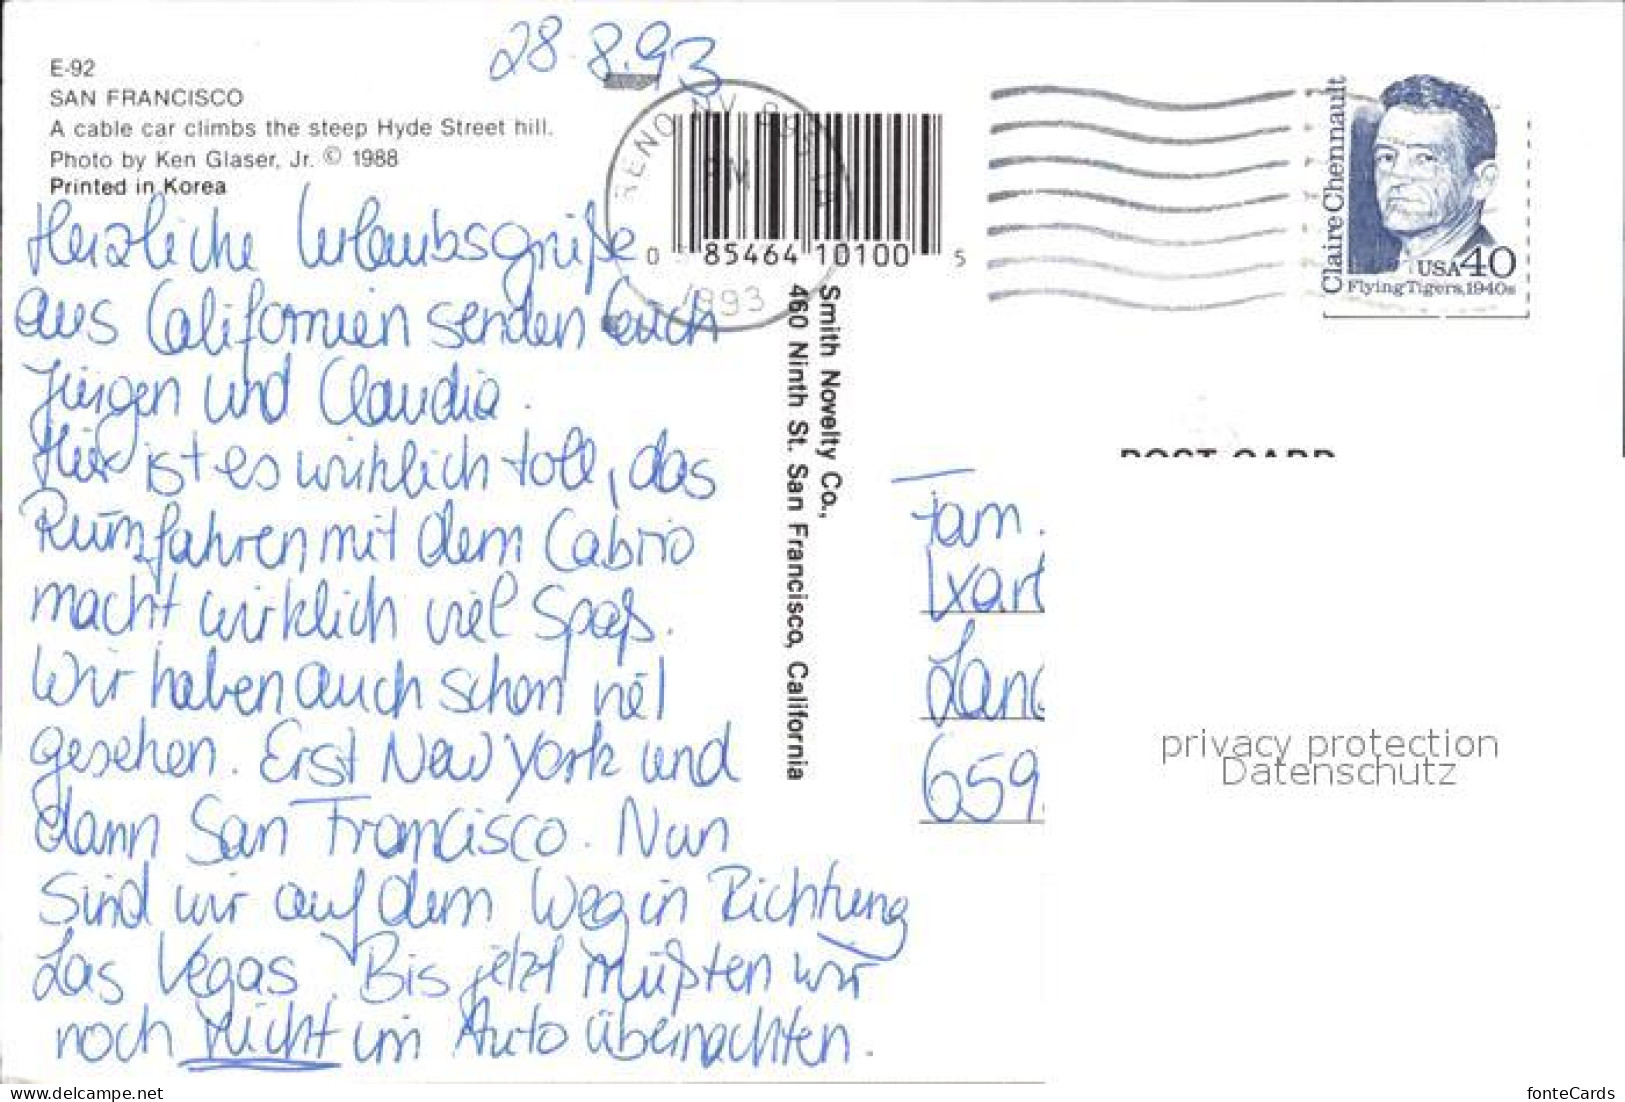 28.8.93
E-92
SAN FRANCISCO
A cable car climbs the steep Hyde Street hill.
Photo by Ken Glaser, Jr. © 1988
Printed in Korea
Herzliche Urlaubsgrüße
aus Californien senden Euch
Jürgen und Claudia.
Hier ist es wirklich toll, das
Rumfahren mit dem Cabrio
macht wirklich viel Spaß.
Wir haben auch schon viel
gesehen. Erst New York und
dann San Francisco. Nun
sind wir auf dem Weg in Richtung
Las Vegas. Bis jetzt mußten wir
noch nicht im Auto übernachten.
RENO NV
PM
1993
0 85464 10100 5
Smith Novelty Co.,
460 Ninth St. San Francisco, California
Claire Chennault
USA 40
Flying Tigers, 1940s
POST CARD
Fam.
659
privacy protection
Datenschutz
akpool.de
fonteCards